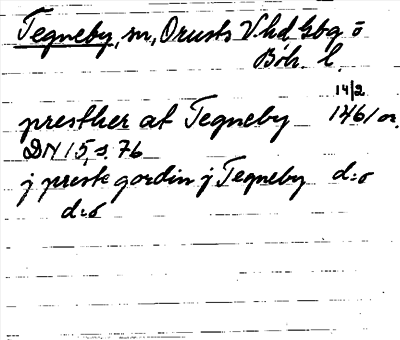 Tegneby, sn, Orusts V hd Gbg o
Boh. l.
14/2
presther at Tegneby 1461 or.
DN 15, s. 76
j preste gordin j Tegneby d:o
d:o